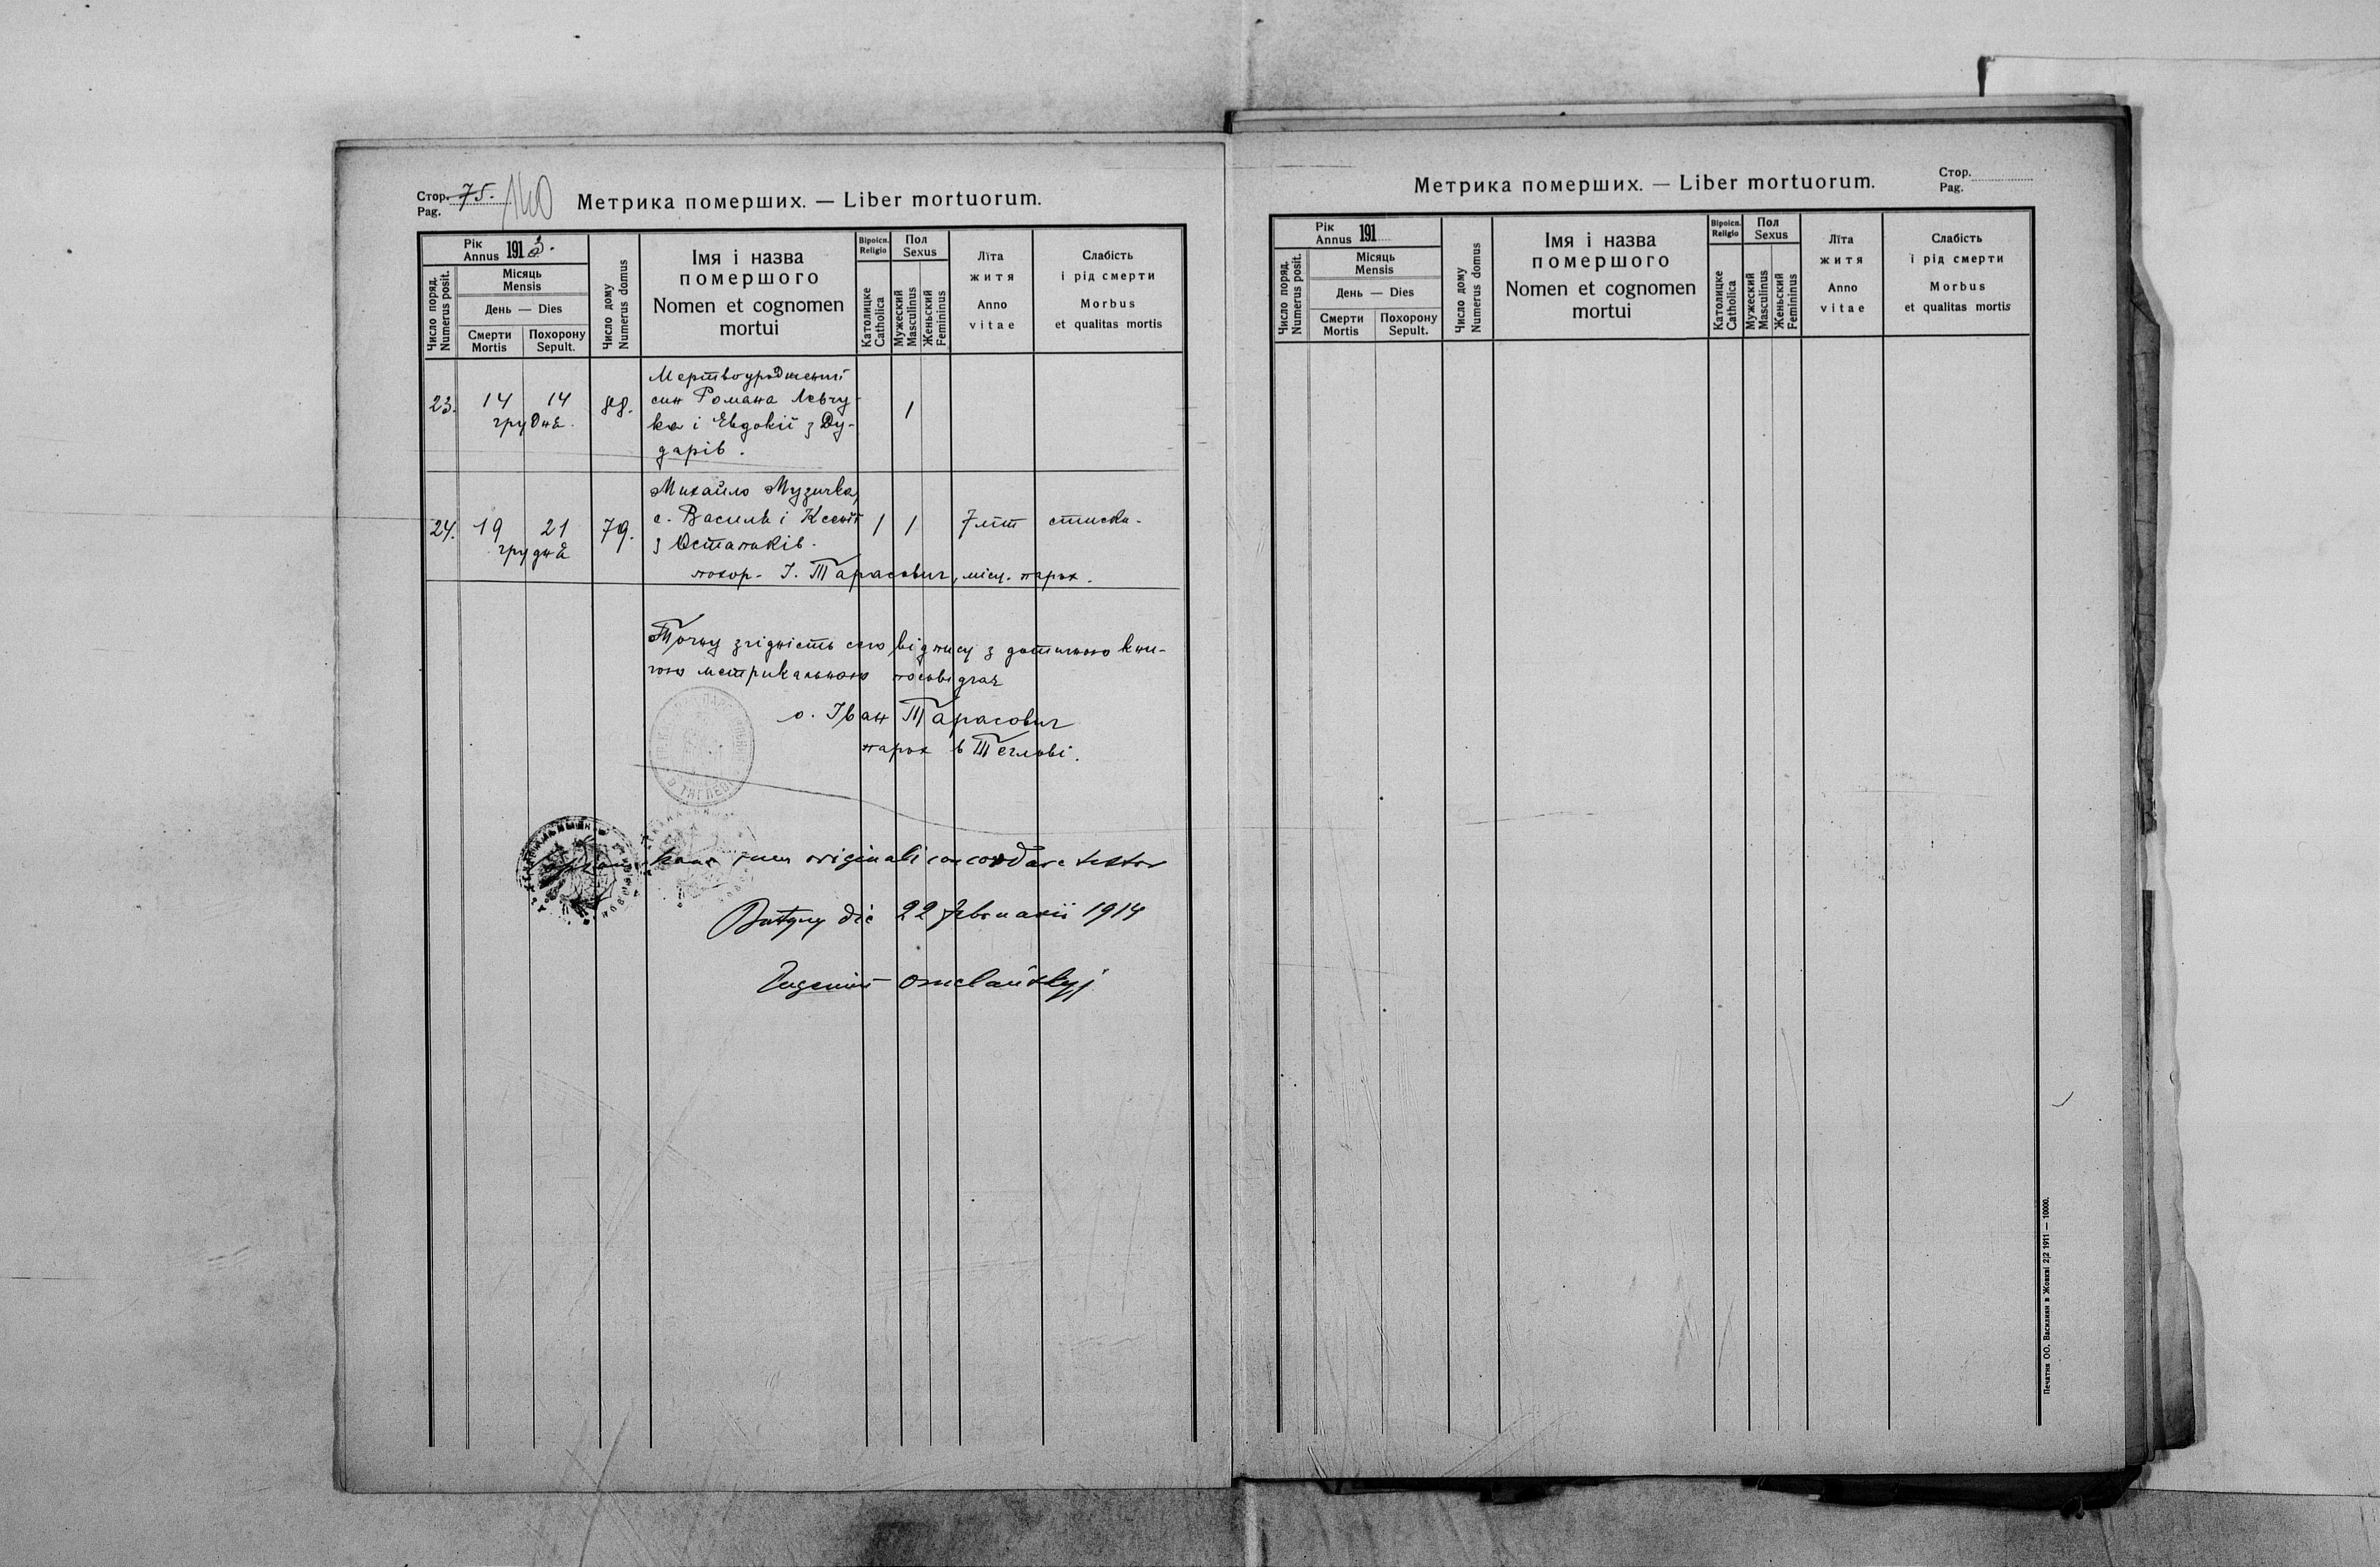 Стор. 75. 140
Pag.
Метрика померших. — Liber mortuorum.
Рік
Annus 1913.
Місяць
Mensis
День — Dies
Число поряд.
Numerus posit.
Смерти
Mortis
Похорону
Sepult.
Число дому
Numerus domus
Імя і назва
помершого
Nomen et cognomen
mortui
Віроісп.
Religio
Католицке
Catholica
Пол
Sexus
Мужеский
Masculinus
Женьский
Femininus
Літа
житя
Anno
vitae
Слабість
і рід смерти
Morbus
et qualitas mortis
23. 14 14 88. 1
грудня.
Мертвоуроджений
син Романа Левчу-
ка і Евдокії з Ду-
дарів.
24. 19 21 79. 1 1 7 літ
грудня
Михайло Музичка,
с. Василя і Ксенії
з Остапюків.
похор. І. Тарасович, місц. парох.
Точну згідність сего відпису з дотичною кни-
гою метрикальною посвідчає
о. Іван Тарасович
парох в Тяглові.
В ТЯГЛЕВІ
hanc cum originali concordare testor
die 22 februarii 1914
Eugenius Omelańskyj
Метрика померших. — Liber mortuorum.
Стор.
Pag.
Рік
Annus 191
Місяць
Mensis
День — Dies
Число поряд.
Numerus posit.
Смерти
Mortis
Похорону
Sepult.
Число дому
Numerus domus
Імя і назва
помершого
Nomen et cognomen
mortui
Віроісп.
Religio
Католицке
Catholica
Пол
Sexus
Мужеский
Masculinus
Женьский
Femininus
Літа
житя
Anno
vitae
Слабість
і рід смерти
Morbus
et qualitas mortis
Печатня ОО. Василиян в Жовкві 2|2 1911 — 10000.